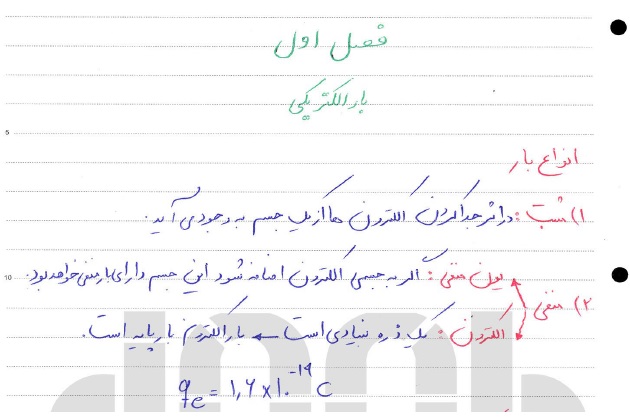 فصل اول
بار الکتریکی
انواع بار
۱) مثبت: در اثر جدا کردن الکترون ها از یک جسم به وجود می آید.
یون منفی: اگر به جسمی الکترون اضافه شود این جسم دارای بار منفی خواهد بود.
۲) منفی
الکترون: یک ذره بنیادی است ← بار الکترون بار پایه است.
qe = ۱,۶ × ۱۰^-۱۹ C
5
10